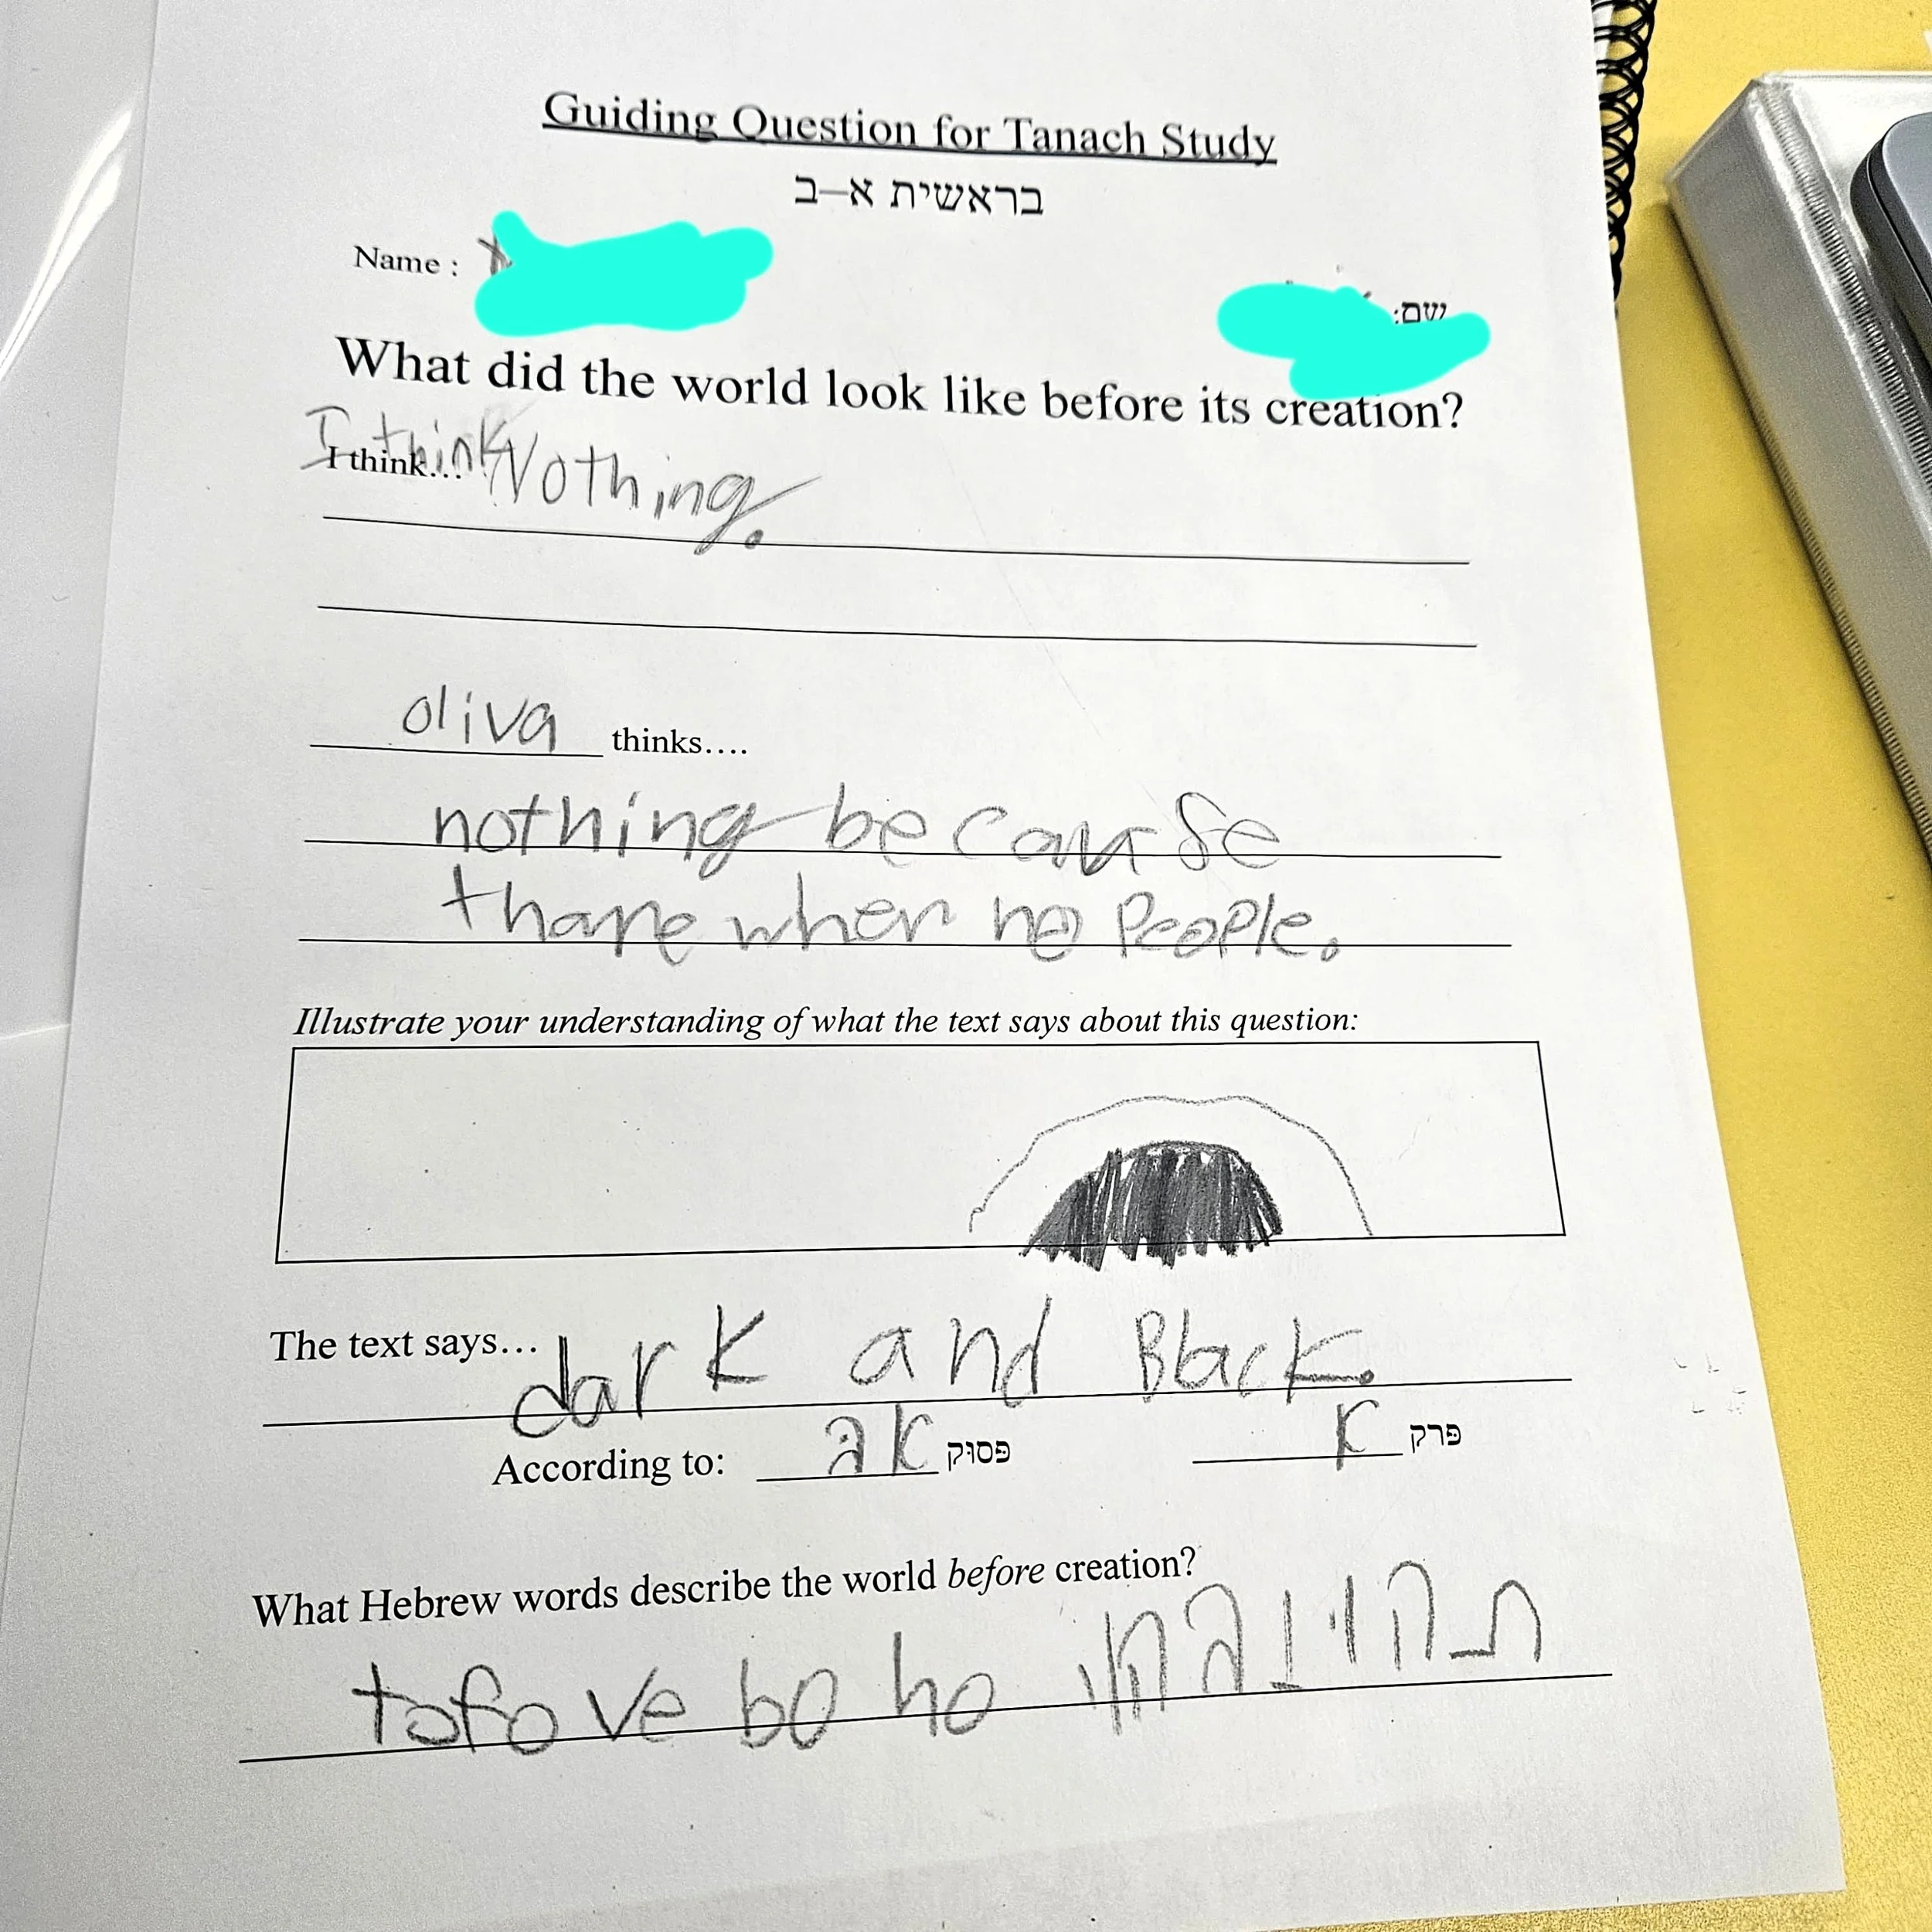 Guiding Question for Tanach Study
בראשית א–ב
Name :
שם:
What did the world look like before its creation?
I think... I think Nothing.
oliva thinks....
nothing because
thare wher no People.
Illustrate your understanding of what the text says about this question:
The text says... dark and Black.
According to: פסוק אב פרק א
What Hebrew words describe the world before creation?
tofo ve bo ho תהו ובהו